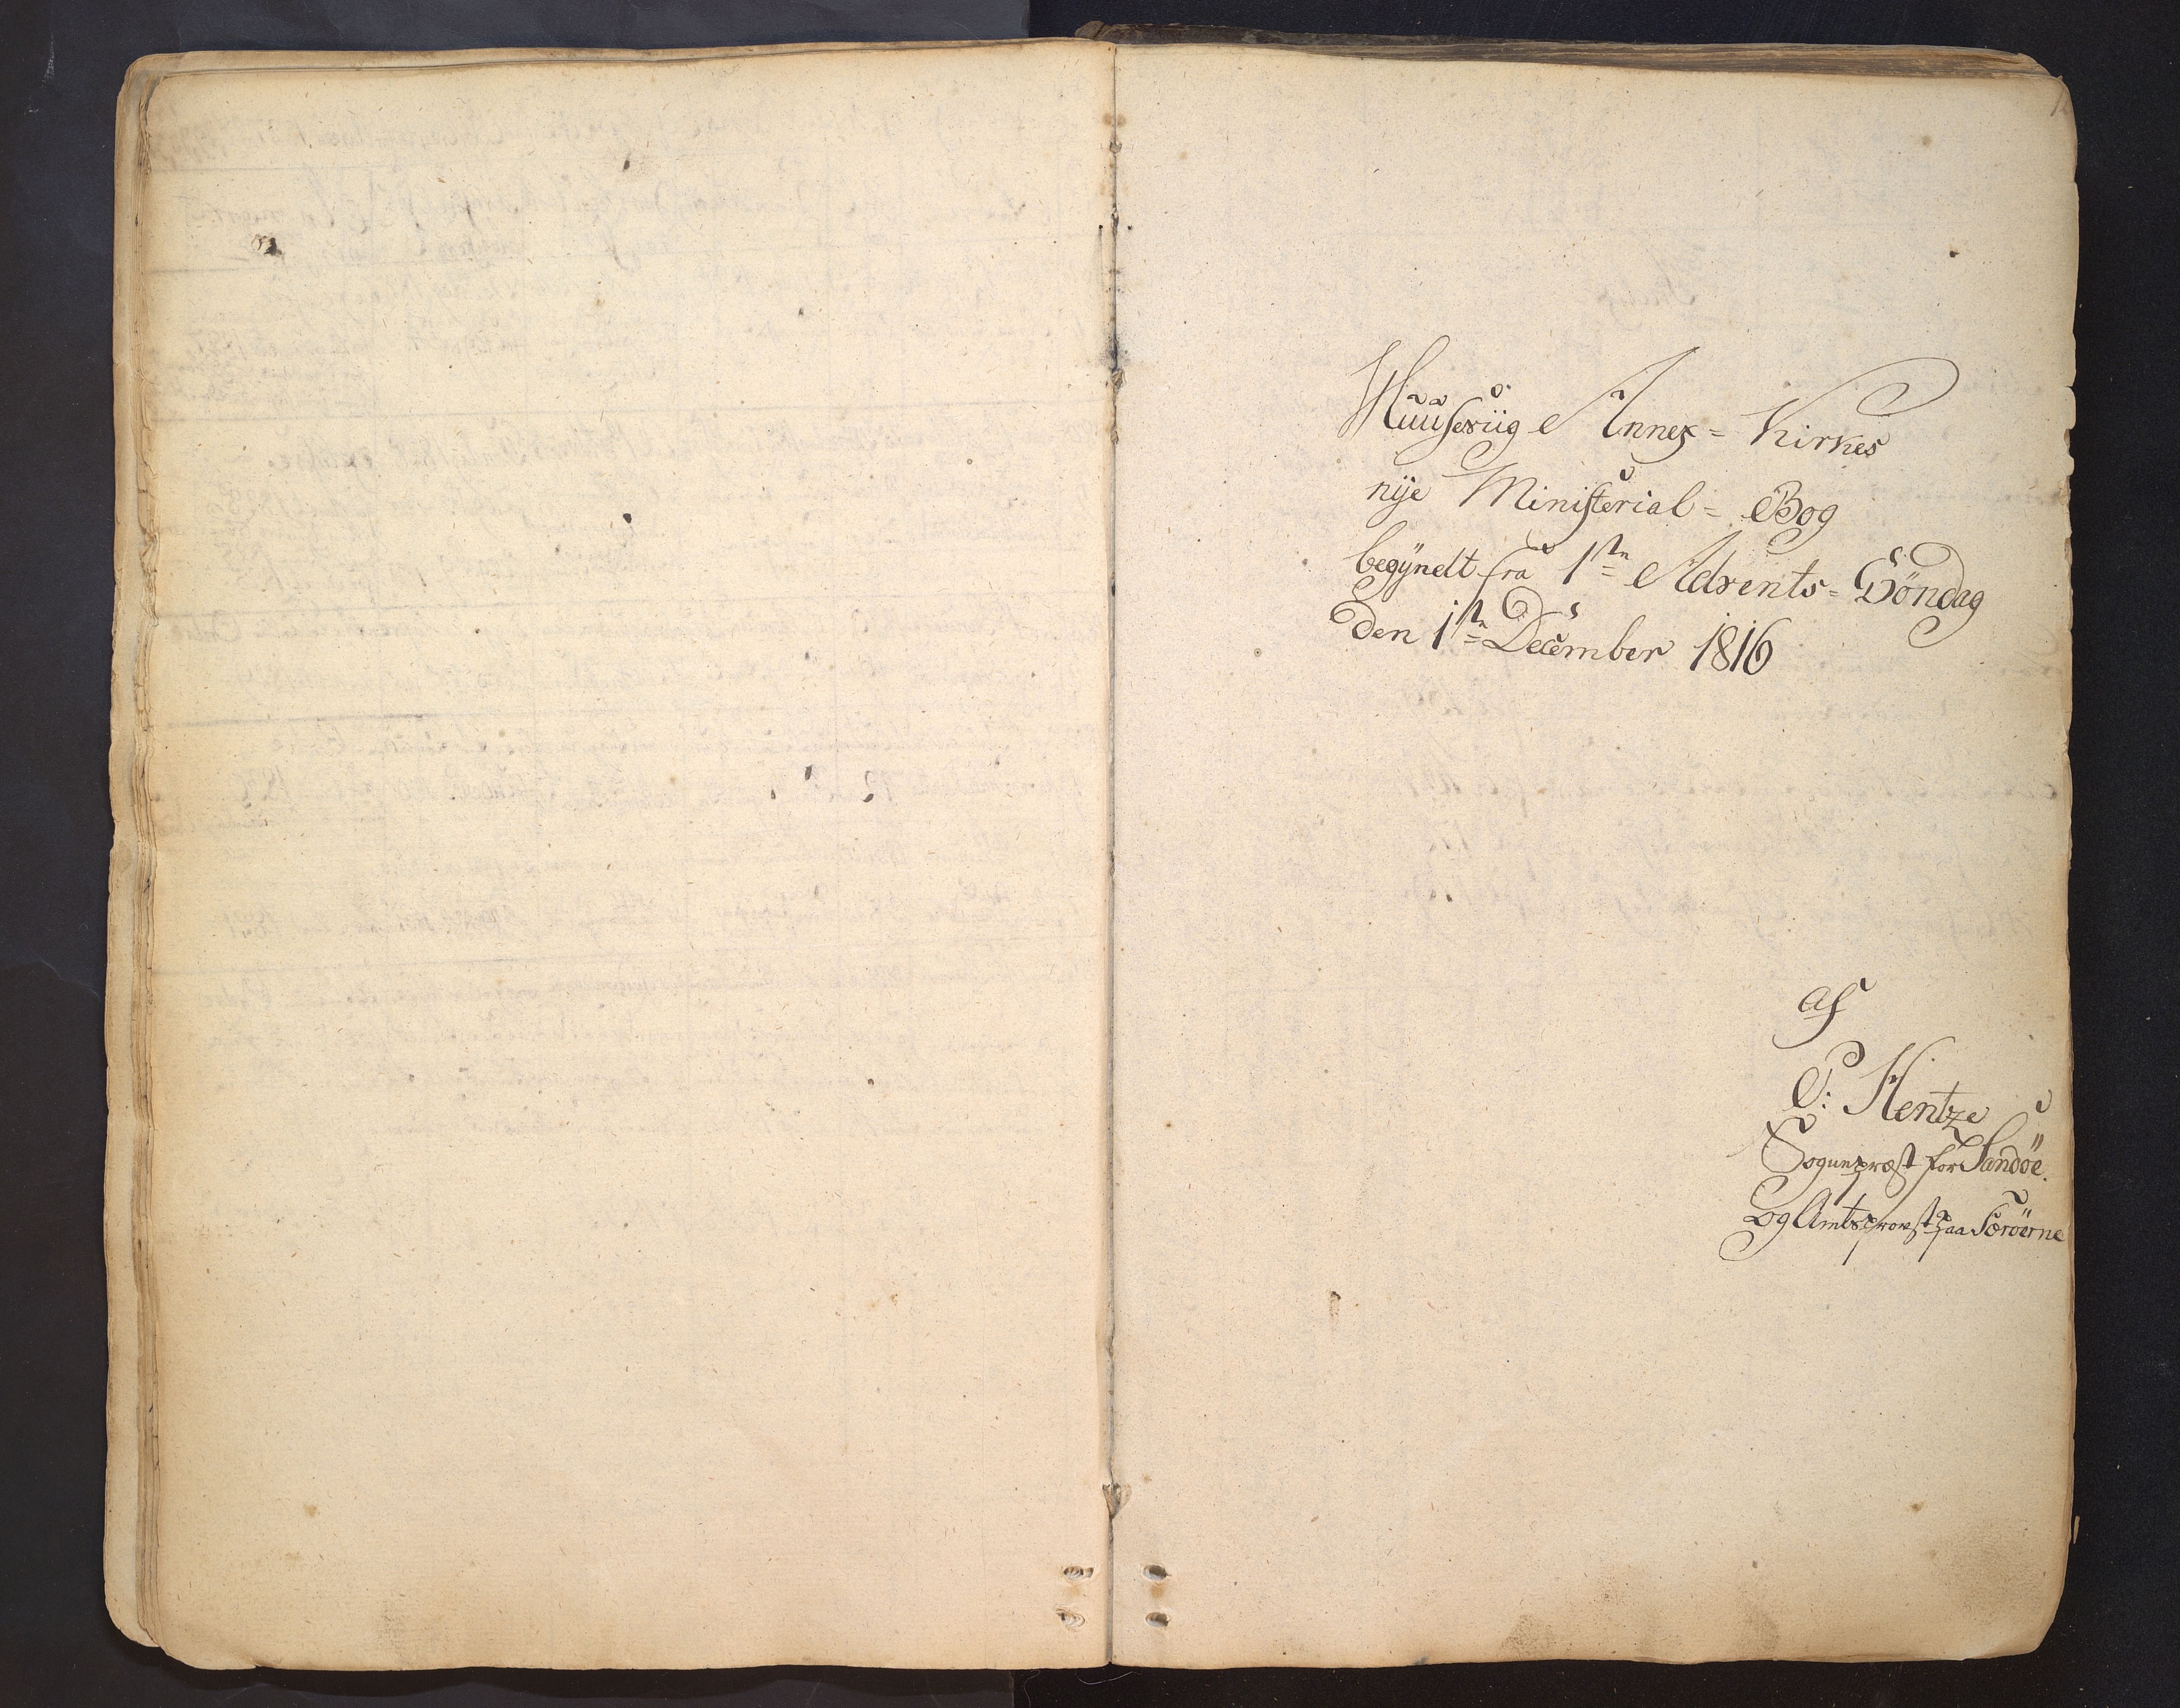 Huuseviig Annex = Kirkes
nÿe Ministerial = Bog
begÿndt fra 1ste Advents = Söndag
den 1ste December 1816
af
P: Hentze
Sognepræst for Sandöe
og Amtsprovst paa Færöerne